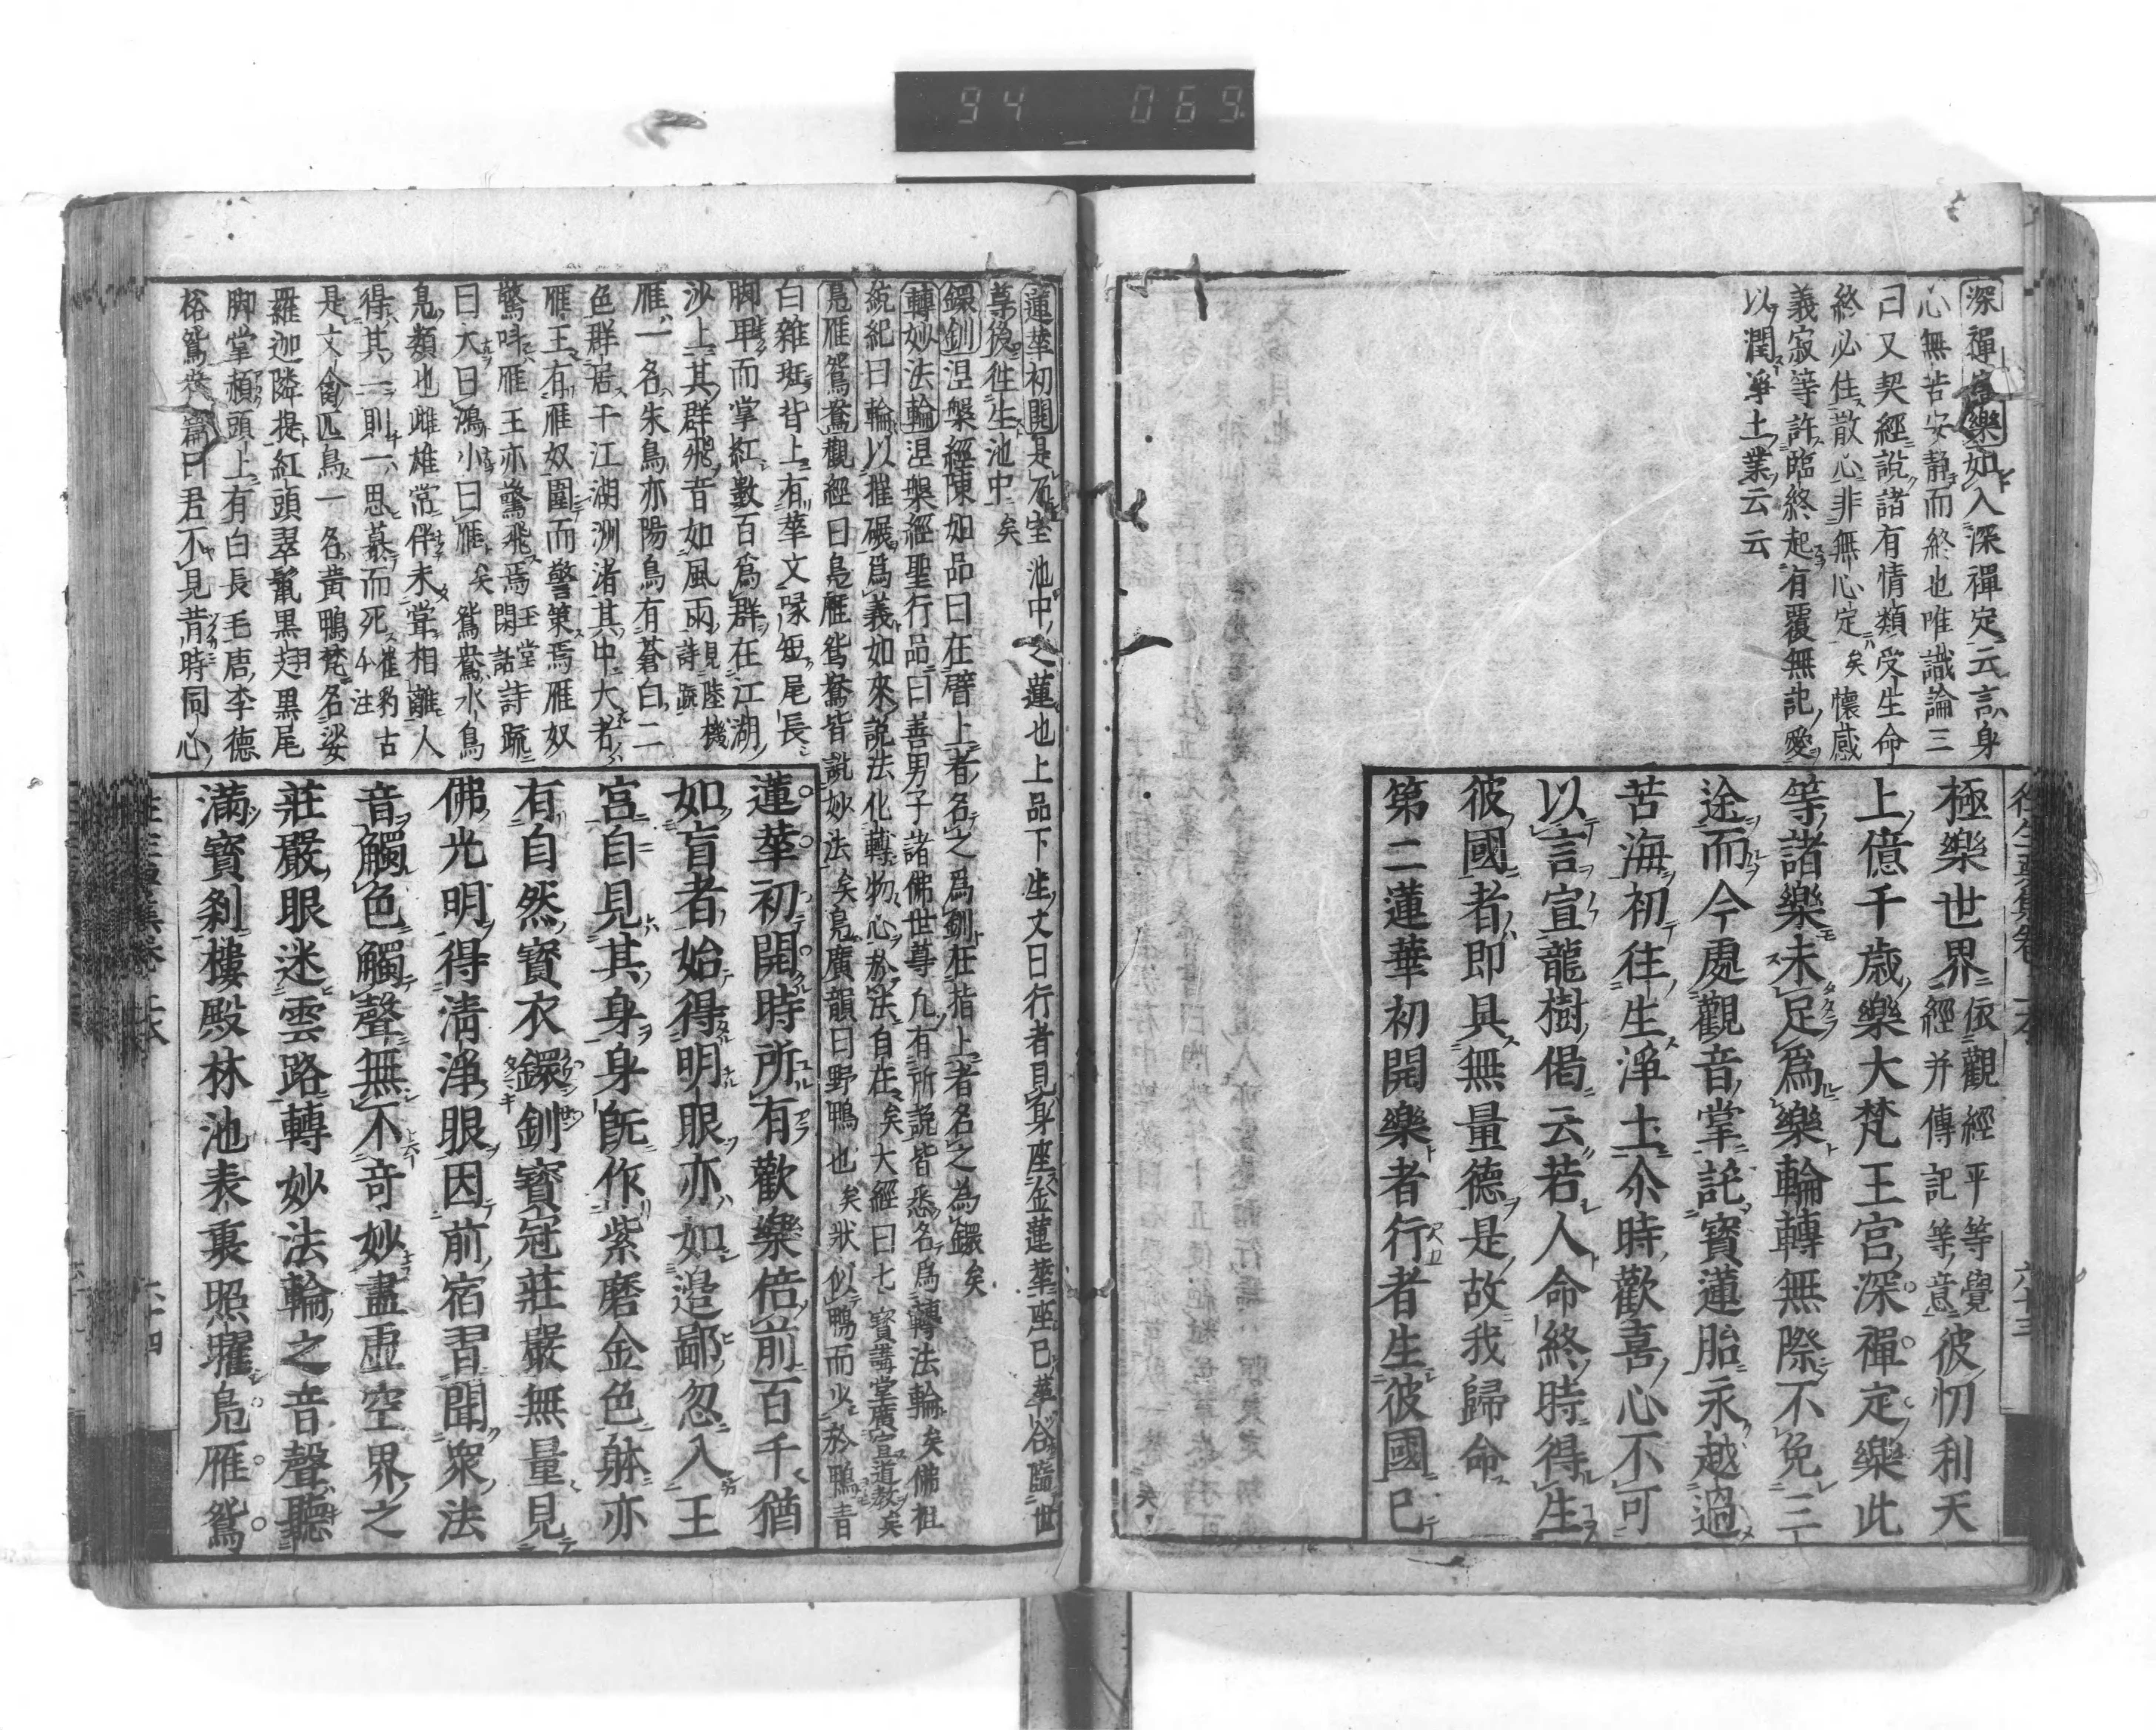 94 069
深禪定樂如入深禪定云言身
心無苦安静而終也唯識論三
曰又契經說諸有情類受生命
終必住散心非無心定矣懷感
義寂等許臨終起有覆無記愛
以潤淨土業云云
極樂世界依觀經平等覺經并傳記等意彼忉利天
上億千歳樂大梵王宮深禪定樂此
等諸樂未足爲樂輪轉無際不免三
途而今處觀音掌託寳蓮胎永越過
苦海初往生淨土尒時歡喜心不可
以言宣龍樹偈云若人命終時得生
彼國者即具無量德是故我歸命
第二蓮華初開樂者行者生彼國已
蓮華初開是石室池中之蓮也上品下生文曰行者自見身座金蓮華座已華合隨世
尊後往生池中矣
鐶釧涅槃經陳如品曰在臂上者名之爲釧在指上者名之為鐶矣
轉妙法輪涅槃經聖行品曰善男子諸佛世尊凢有所説皆悉名爲轉法輪矣佛祖
統紀曰輪以摧碾爲義如來說法化轉物心於法自在矣大經曰七寳講堂廣宣道教矣
鳬雁鴛鴦觀經曰鳬雁鴛鴦皆說妙法矣鳬廣韻曰野鴨也矣狀似鴨而少於鴨青
白雜斑背上有華文喙短尾長
脚卑而掌紅數百爲群在江湖
沙上其群飛音如風雨見陸機詩䟽
雁一名朱鳥亦陽鳥有蒼白二
色群居于江湖洲渚其中大者
雁王有雁奴圍而警策焉雁奴
驚呌雁王亦驚飛焉玉堂閑話詩䟽
曰大曰鴻小曰雁矣鴛鴦水鳥
鳬類也雌雄常伴未甞相離人
得其一則一思慕而死矣崔豹古今注
是文禽匹鳥一名黄鴨梵名娑
羅迦隣提紅頭翠鬣黒翅黒尾
脚掌頳頭上有白長毛唐李德
裕鴛鴦篇曰君不見昔時同心
蓮華初開時所有歡樂倍前百千猶
如盲者始得明眼亦如邉鄙忽入王
宮自見其身身既作紫磨金色躰亦
有自然寳衣鐶釧寳冠莊嚴無量見
佛光明得清淨眼因前宿習聞衆法
音觸色觸聲無不奇妙盡虚空界之
莊嚴眼迷雲路轉妙法輪之音聲聽
滿寳刹樓殿林池表裏照曜鳬雁鴛